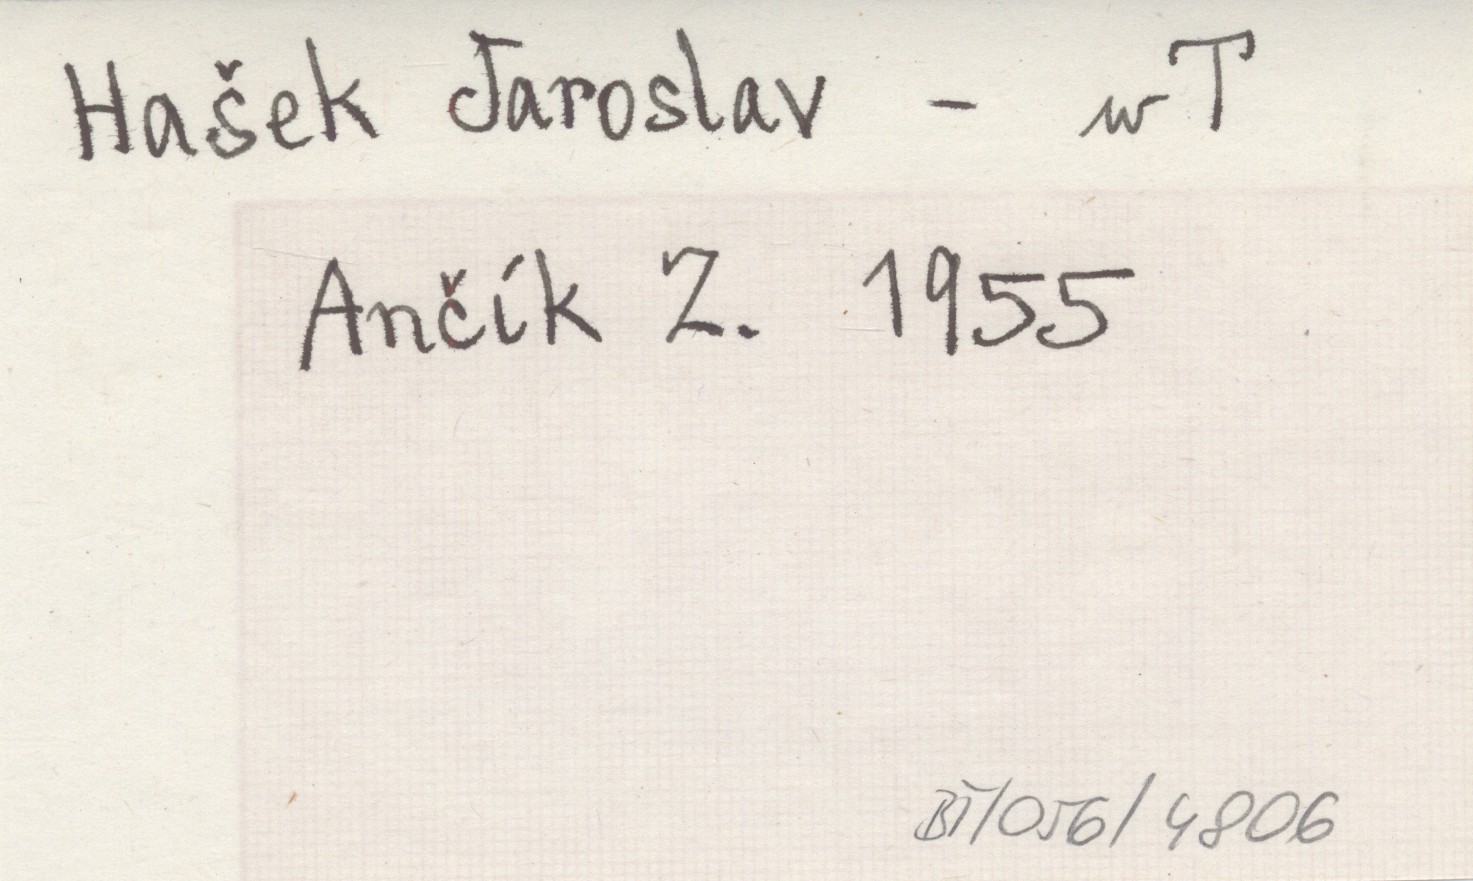 Hašek Jaroslav - w T
Ančík Z. 1955
BT/056/4806